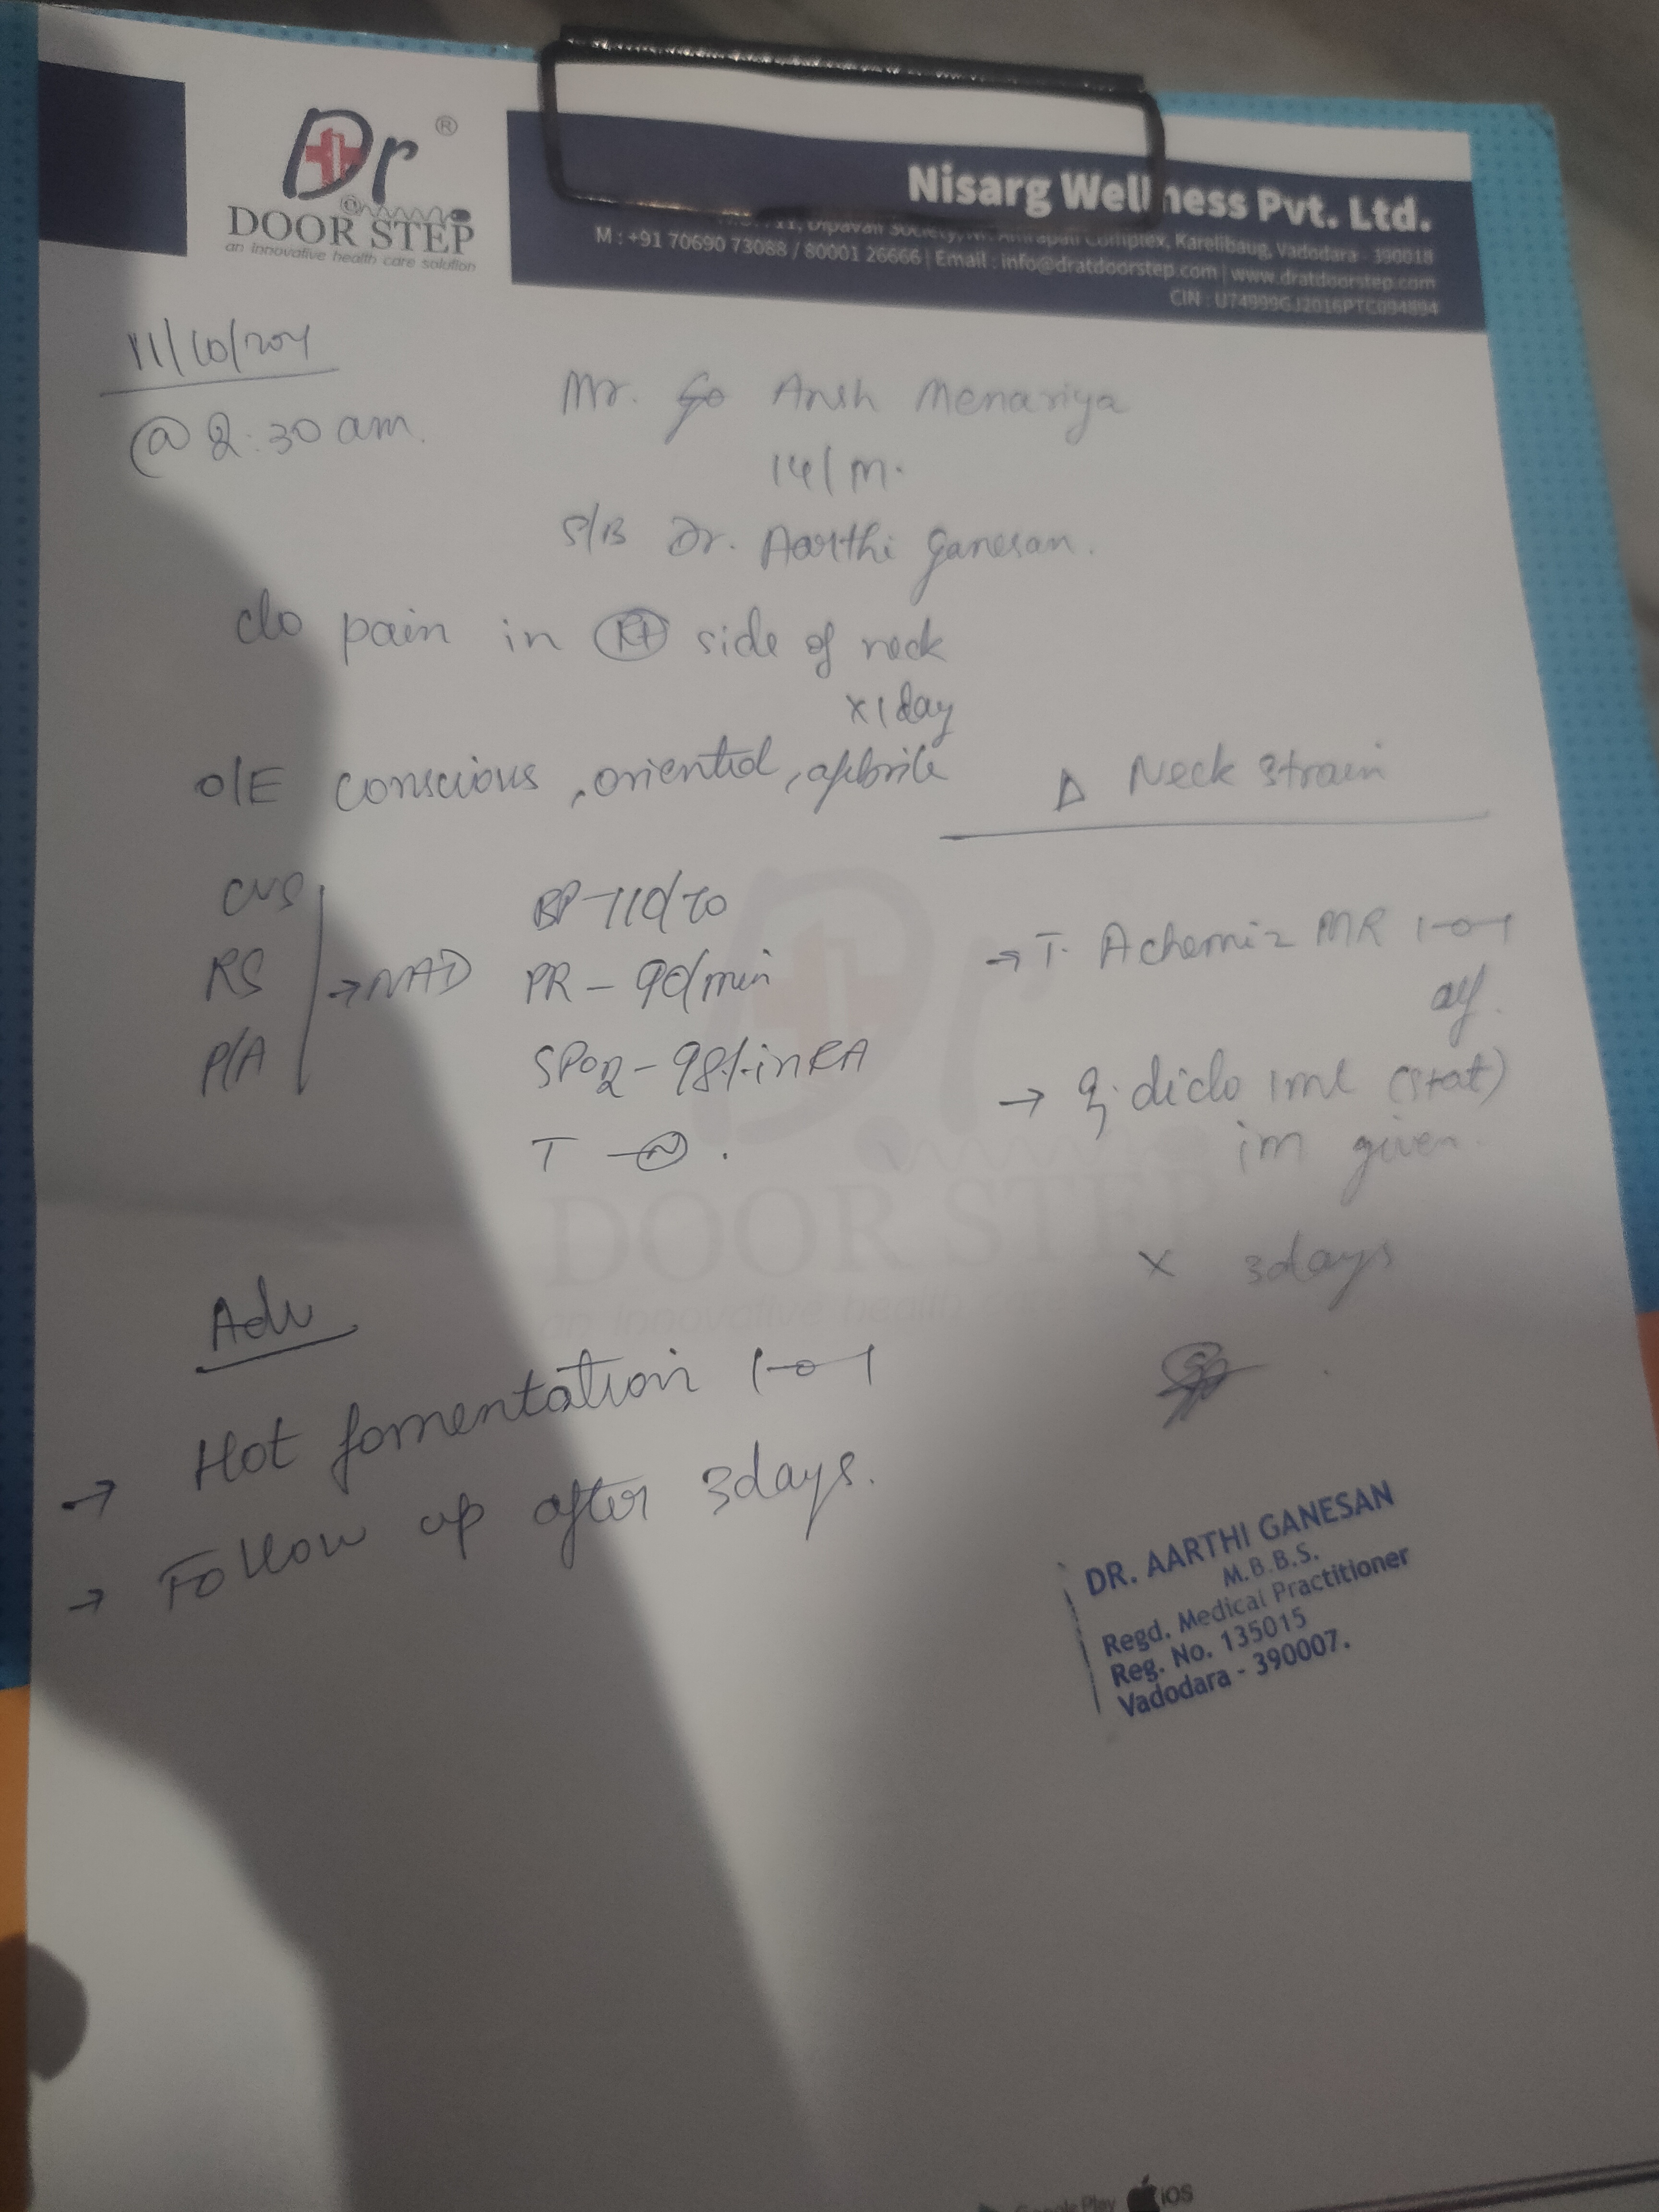 Dr ®
DOOR STEP
an innovative health care solution
Nisarg Wellness Pvt. Ltd.
11, Dipavali Society, Nr. Amrapali Complex, Karelibaug, Vadodara - 390018
M : +91 70690 73088 / 80001 26666 | Email : info@dratdoorstep.com | www.dratdoorstep.com
CIN : U74999GJ2016PTC094894
@ 2:30 am.
Mr. Ansh Menariya
14/M.
S/B Dr. Aarthi Ganesan.
c/o pain in Rt side of neck
x 1 day
O/E conscious, oriented, afebrile
Δ Neck strain
CVS
RS → NAD
P/A
BP - 110/70
PR - 90/min
SPO2 - 98% in RA
T - N .
→ T. MR 1-0-1
→ diclo 1ml (stat)
im given.
x 3days
Adv
→ Hot fomentation 1-0-1
→ Follow up after 3days.
DR. AARTHI GANESAN
M.B.B.S.
Regd. Medical Practitioner
Reg. No. 135015
Vadodara - 390007.
Google Play iOS